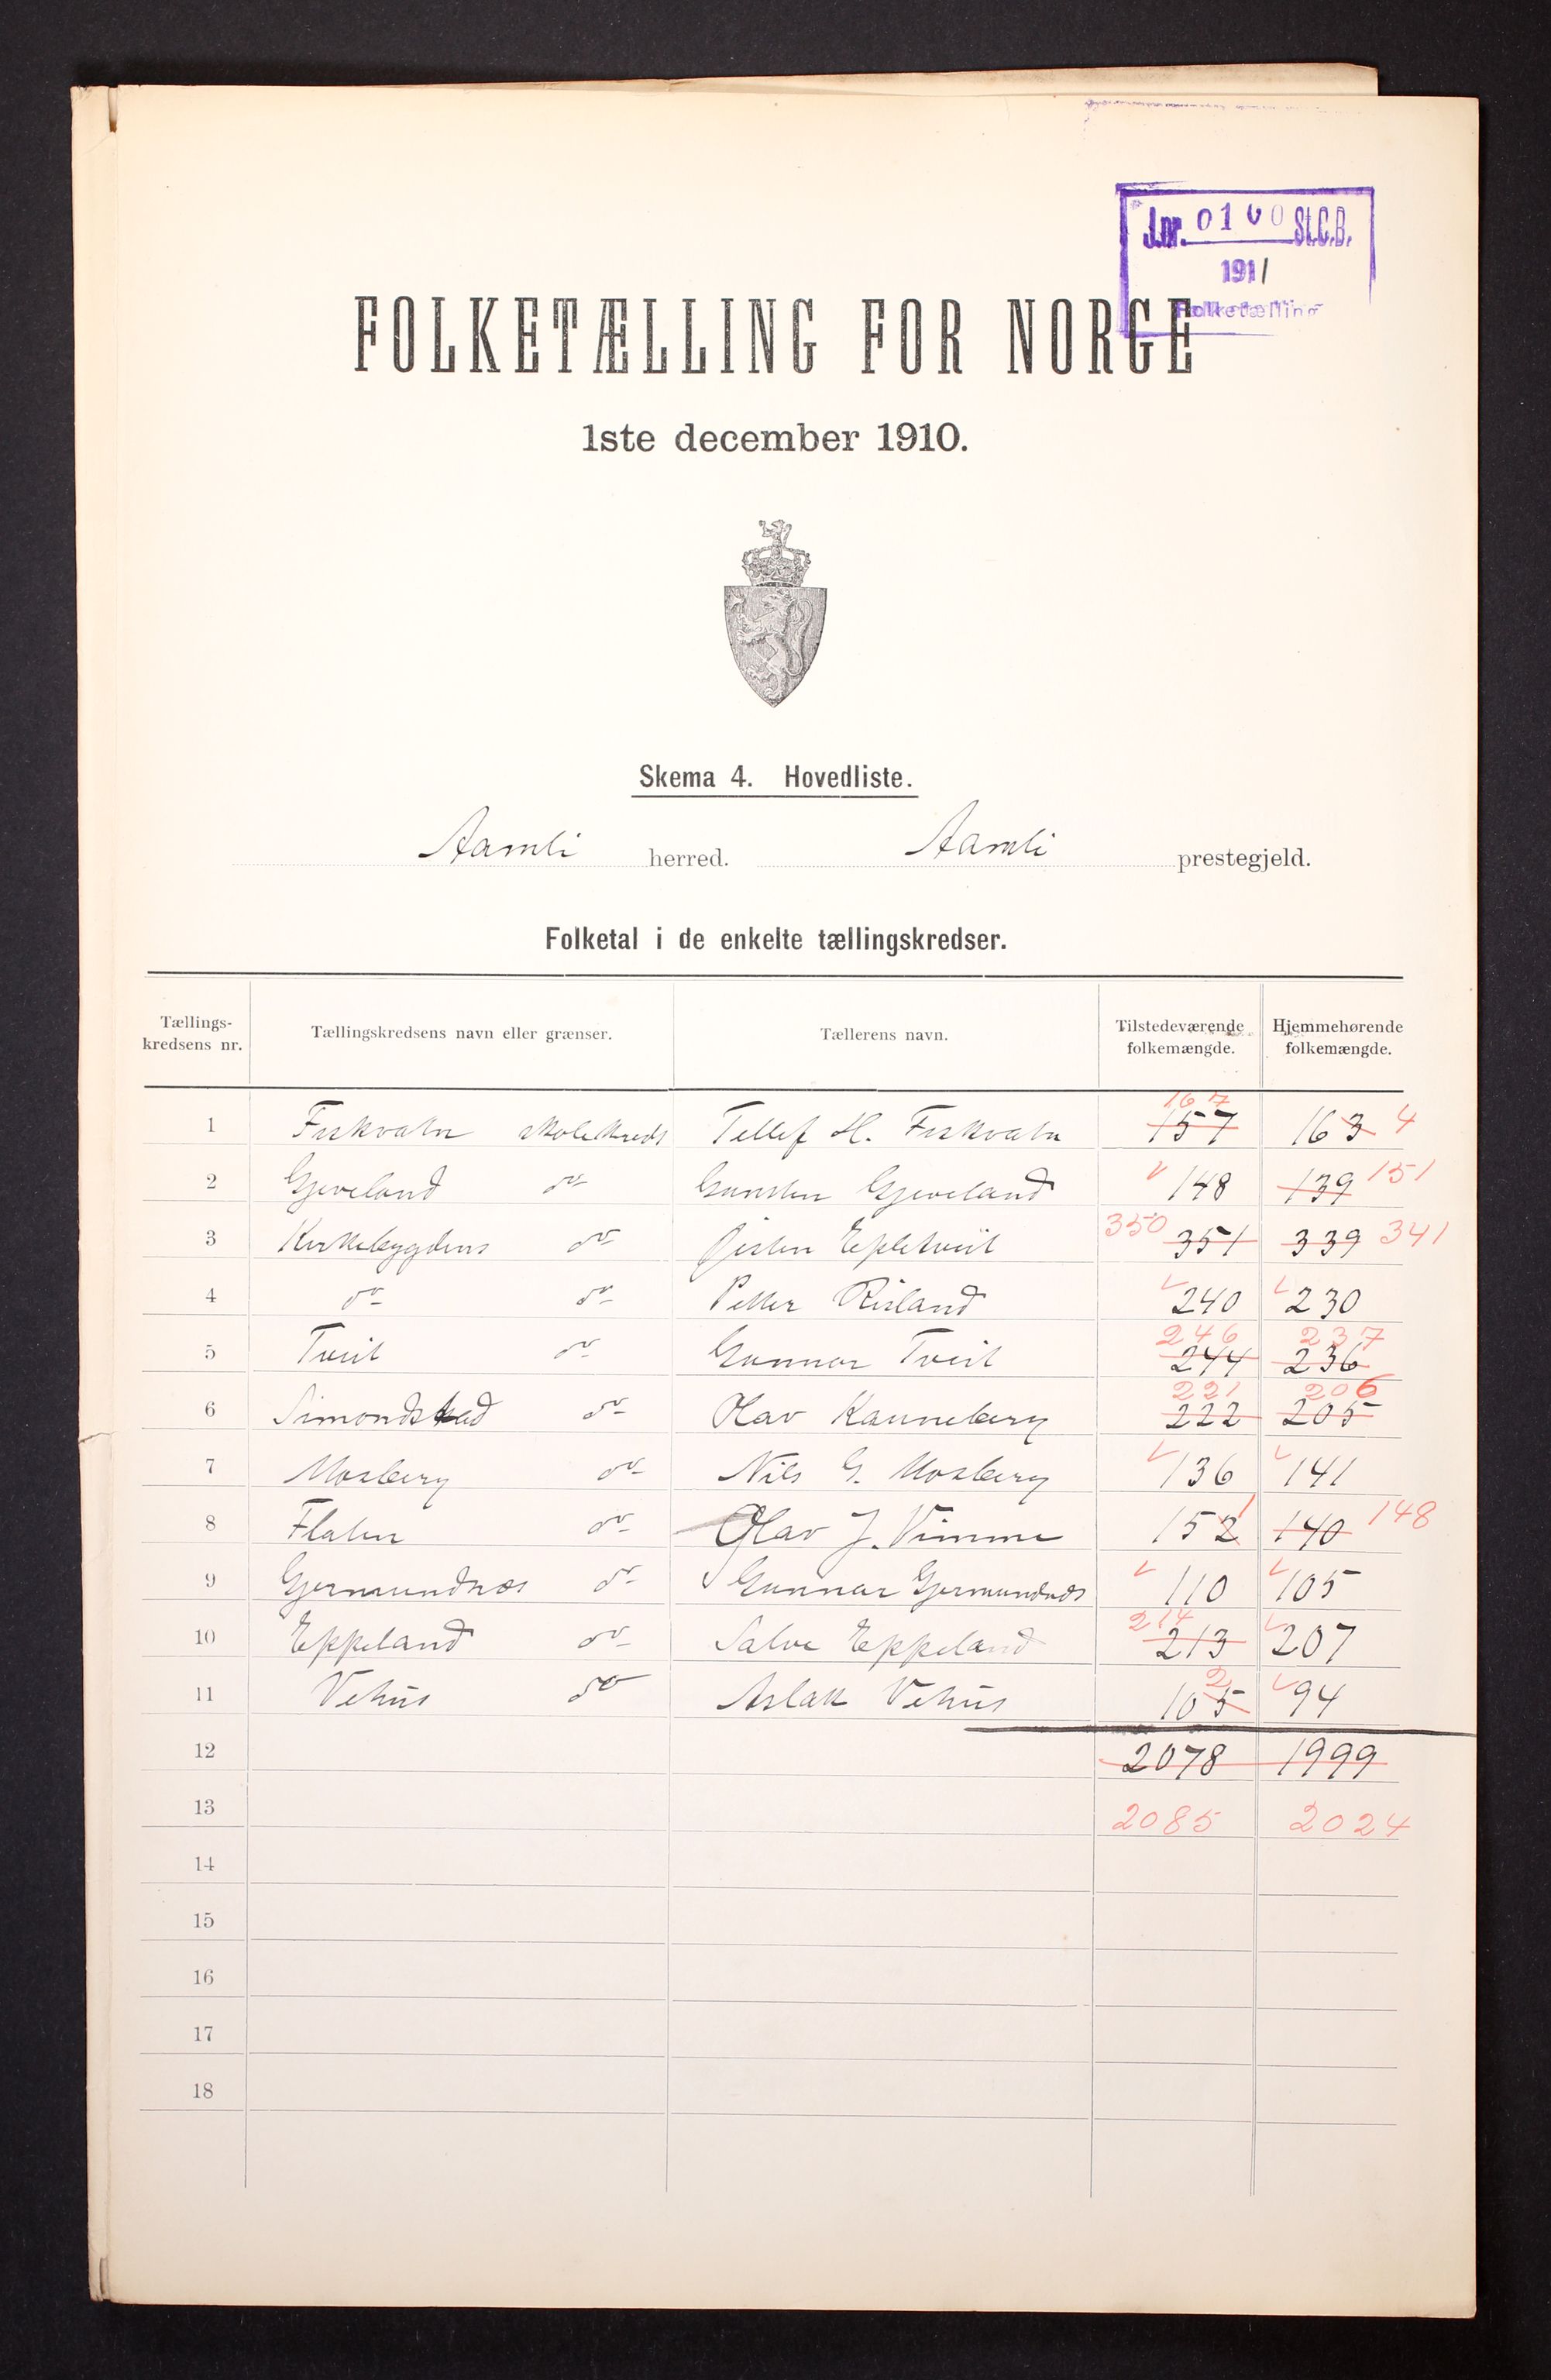 J.nr. 0100 St.C.B.
1911
Folketælling
FOLKETÆLLING FOR NORGE
1ste december 1910.
Skema 4. Hovedliste.
Aamli herred. Aamli prestegjeld.
Folketal i de enkelte tællingskredser.
Tællings-kredsens nr. Tællingskredsens navn eller grænser. Tællerens navn. Tilstedeværende folkemængde. Hjemmehørende folkemængde.
167
1 Fiskvatn skolekreds Tellef H. Fiskvatn 157 163 4
2 Gjeveland do Gunsten Gjeveland 148 139 151
3 Kirkebygdens do Øisten Epletveit 350 351 339 341
4 do do Petter Risland 240 230
246 237
5 Tveit do Gunnar Tveit 244 236
221 206
6 Simondstad do Olav Kanneberg 222 205
7 Mosberg do Nils G. Mosberg 136 141
8 Flaten do Olav J. Vimme 152 1 140 148
9 Gjermundnæs do Gunnar Gjermundnæs 110 105
214
10 Eppeland do Salve Eppeland 213 207
2
11 Vehus do Aslak Vehus 105 94
12 2078 1999
13 2085 2024
14
15
16
17
18